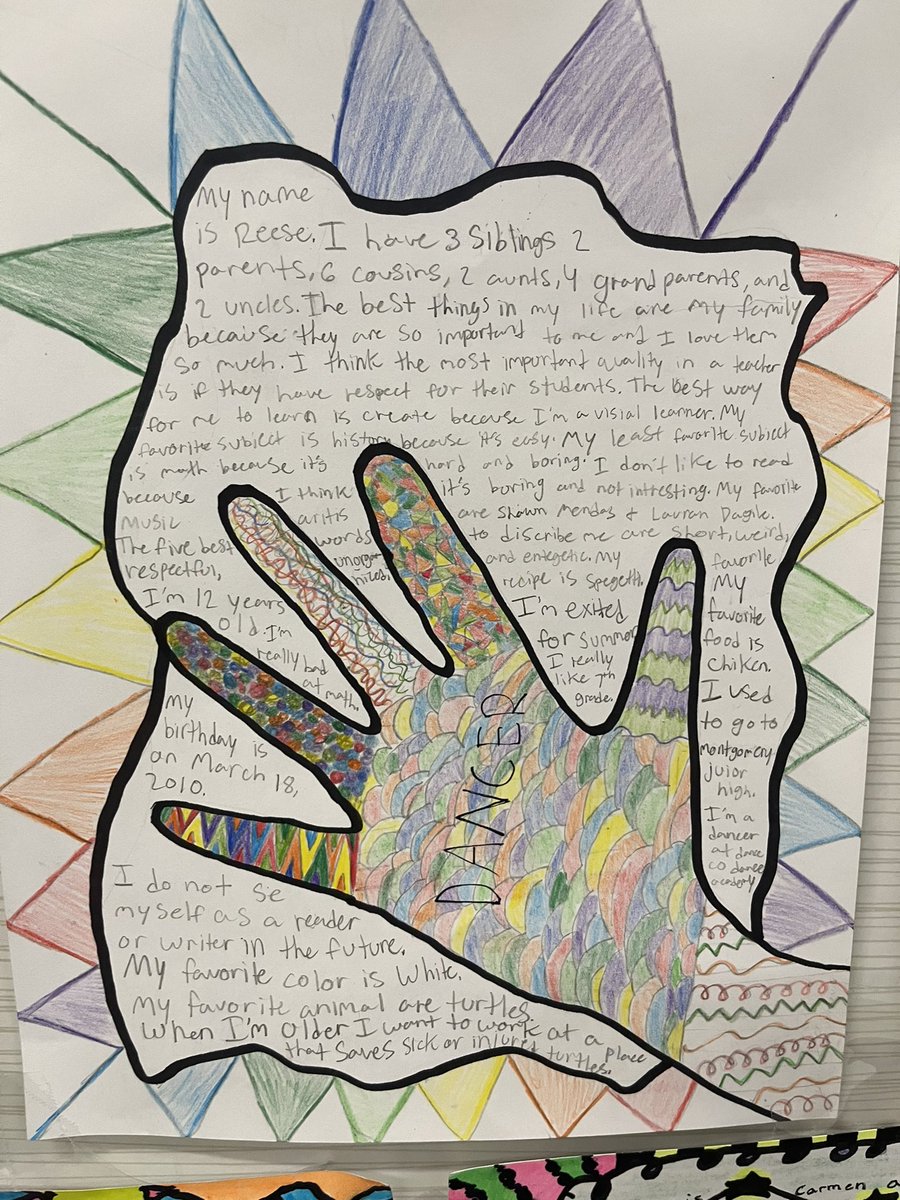 My name
is Reese. I have 3 siblings 2
parents, 6 cousins, 2 aunts, 4 grandparents, and
2 uncles. The best things in my life are my family
because they are so important to me and I love them
so much. I think the most important quality in a teacher
is if they have respect for their students. The best way
for me to learn is create because I'm a visial learner. My
favorite subject is history because it's easy. My least favorite subject
is math because it's hard and boring. I don't like to read
because I think it's buring and not intresting. My favorite
music aritis are Shawn Mendas & Lauran Dagile.
The five best words to discribe me are short, weird,
respectful, and entegetic. My favorite
recipe is spegetti.
I'm 12 years
old. I'm
really bad
at math.
I'm exited
for summer
I really
like 7th
grade.
My
favorite
food is
chiken.
I used
to go to
montgomery
juior
high.
I'm a
dancer
at dance
co dance
academy
My
birthday is
on March 18,
2010.
DANCER
I do not se
myself as a reader
or writer in the future.
My favorite color is white.
My favorite animal are turtles.
When I'm older I want to work at a place
that saves sick or injured turtles.
is
Carmen a